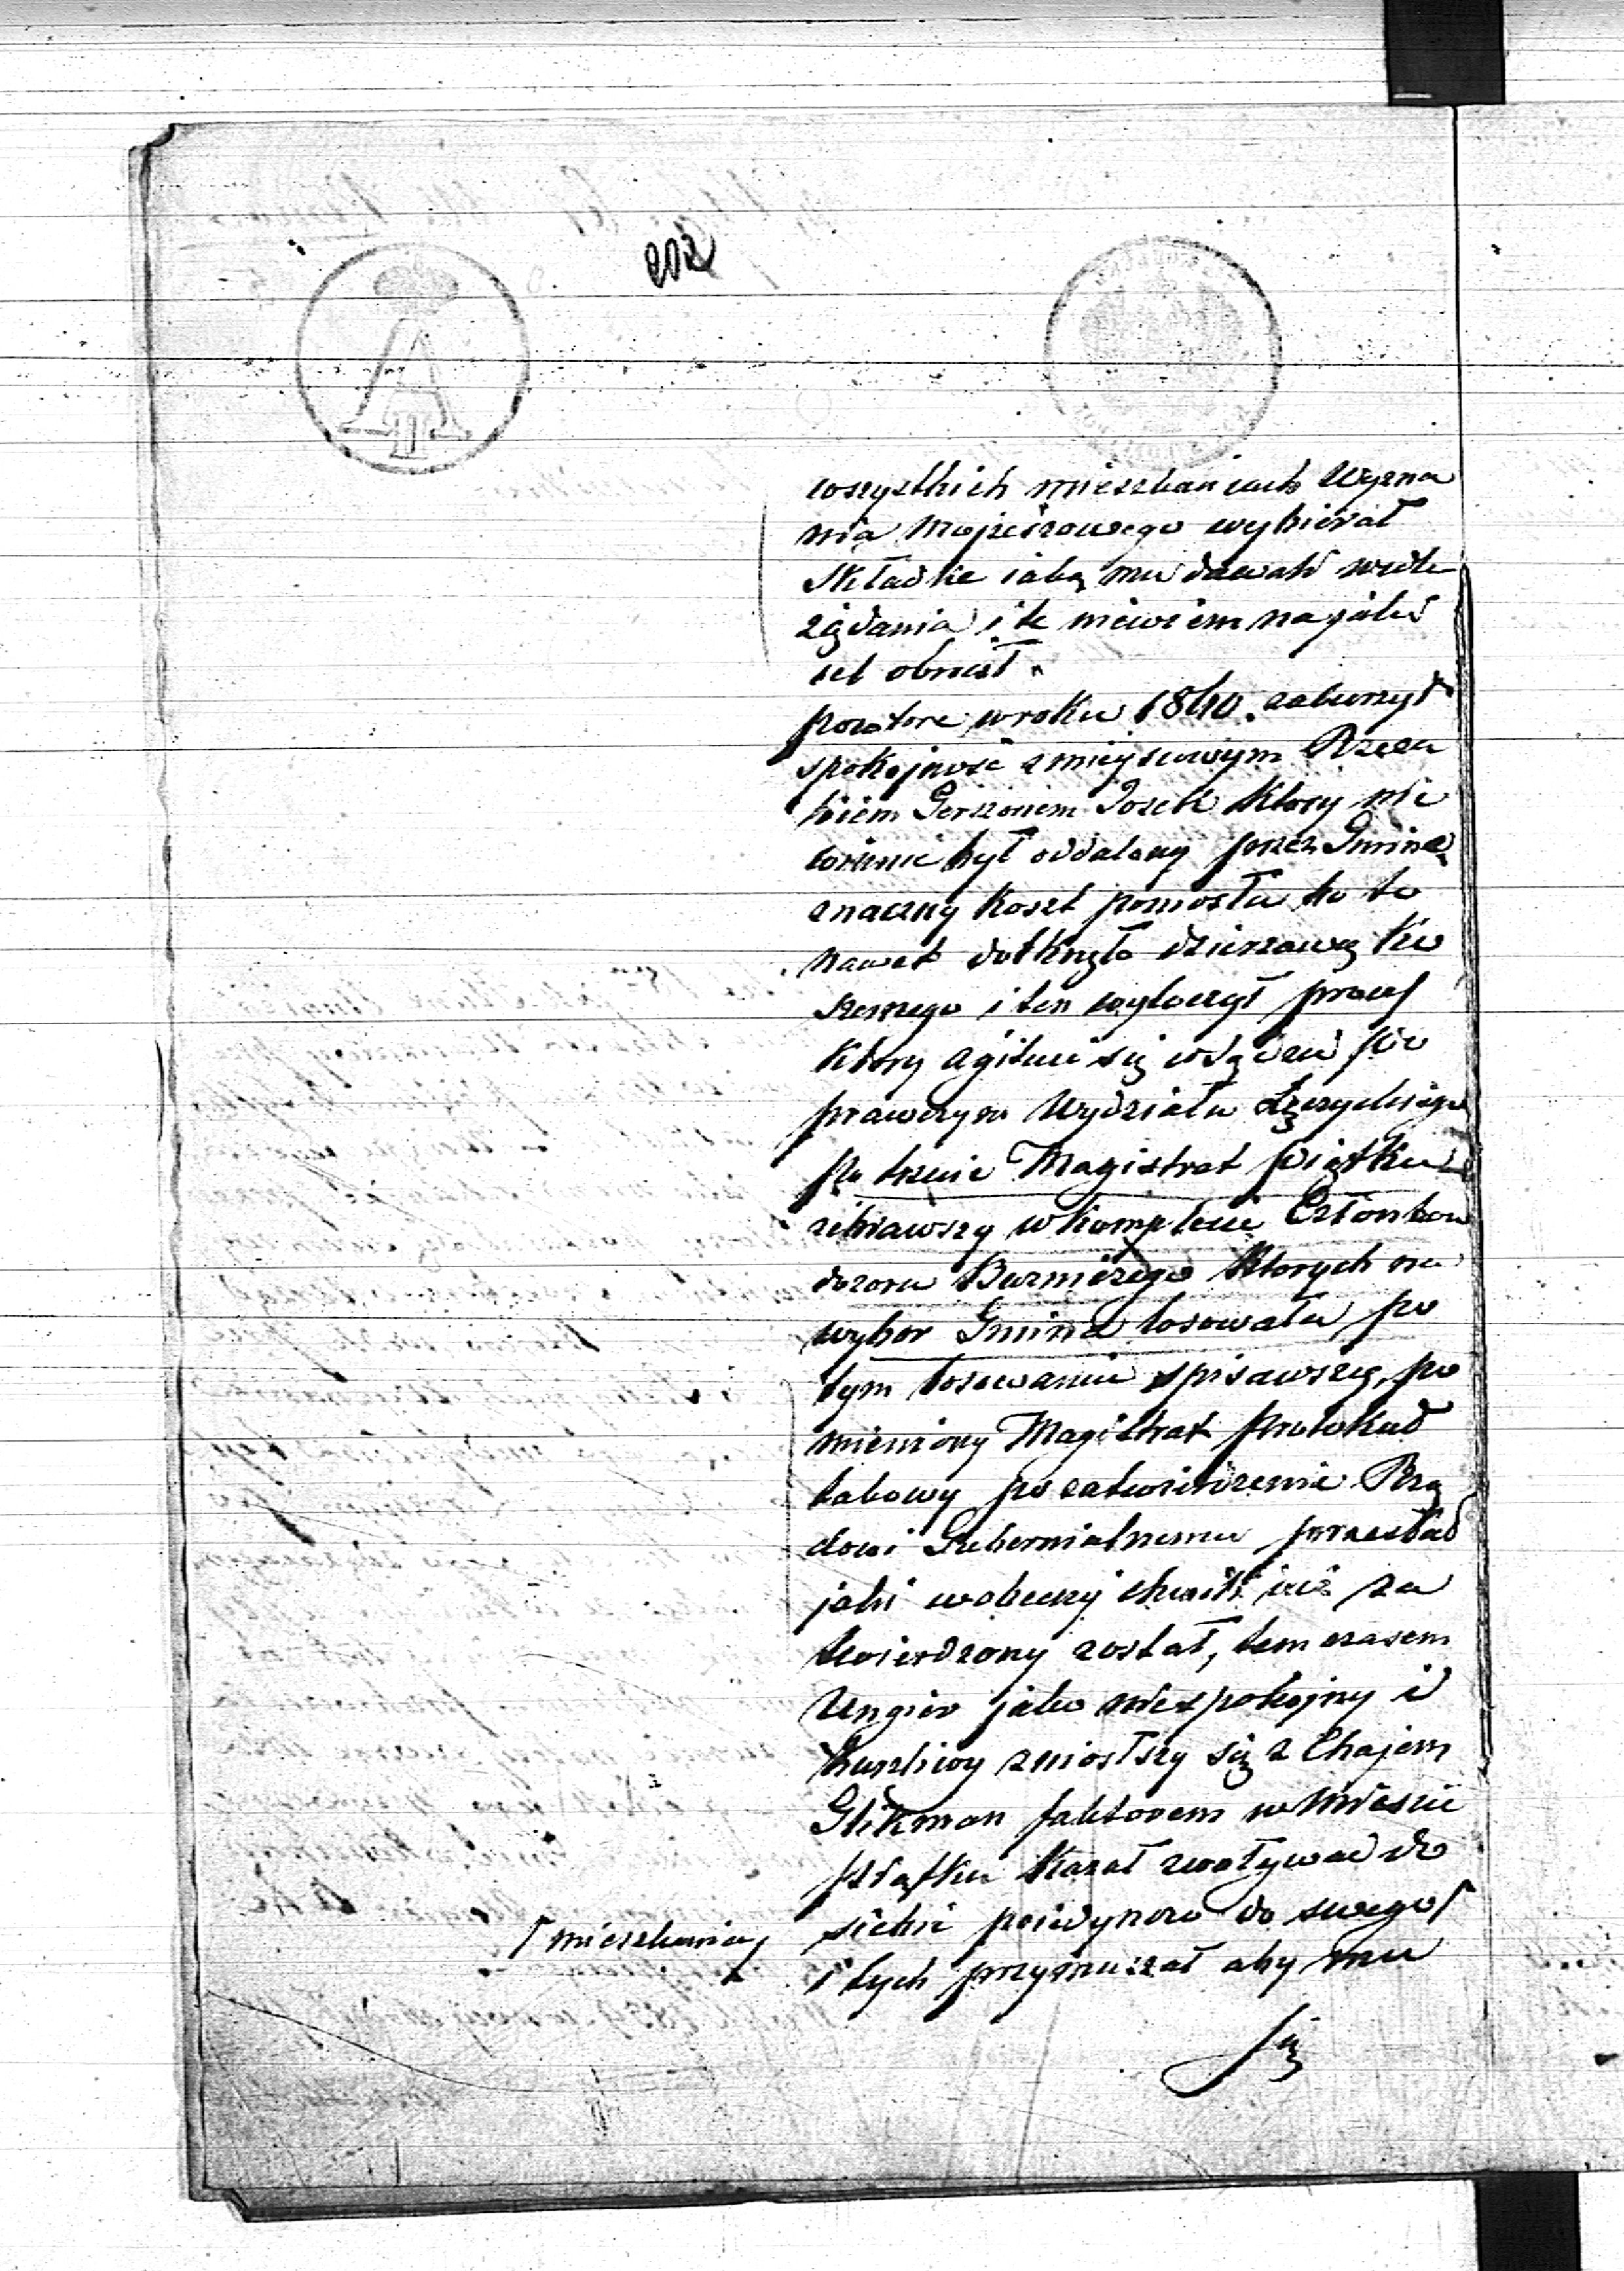 202
wszystkich mieszkańcach Wyzna
nia Mojżeszowego wybierał
Składkie iaką mu dawali wedle
żądania i te niewiem na jaki
cel obrucił.
powtore w roku 1840. zaburzył
spokojność z mieyscowym Rzeza
kiem Gerszonem Josek ktory nie
winnie był oddalony przez Gmina
znaczny koszt poniosła bo to
nawet dotknęło dzierzawcę Ko
szernego i ten wytoczył proces
ktory agituie się w Sądzie Po
prawczym Wydziału Łęczyckiego
po trzecie Magistrat Piątku
zebrawszy w komplecie Członkow
dozoru Bużniczego ktorych na
wybor Gmina losowała po
tym losowaniu spisawszy po
mieniony Magistrat protokuł
takowy po zatwierdzenie Rzą
dowi Gubernialnemu przesłał
jaki w obecny chwili iuż za
twierdzony został, tem czasem
Ungier jako niespokojny i
burzliwy zniosłszy się z Chajem
Glikman faktorem w Mieście
Piątku kazał zwoływać do
siebie poiedynczo do swego
mieszkania
i tych przymuszał aby mu
się